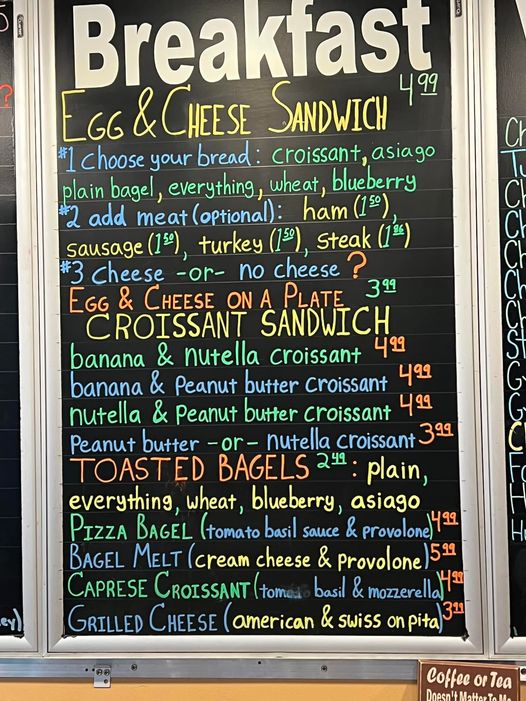 Breakfast
EGG & CHEESE SANDWICH 4.99
#1 choose your bread: croissant, asiago
plain bagel, everything, wheat, blueberry
#2 add meat (optional): ham (1.50),
sausage (1.50), turkey (1.50), steak (1.86)
#3 cheese -or- no cheese ?
EGG & CHEESE ON A PLATE 3.99
CROISSANT SANDWICH
banana & nutella croissant 4.99
banana & Peanut butter croissant 4.99
nutella & Peanut butter croissant 4.99
Peanut butter -or- nutella croissant 3.99
TOASTED BAGELS 2.49: plain,
everything, wheat, blueberry, asiago
PIZZA BAGEL (tomato basil sauce & provolone) 4.99
BAGEL MELT (cream cheese & provolone) 5.99
CAPRESE CROISSANT (tomato basil & mozzerella) 4.99
GRILLED CHEESE (american & swiss on pita)
Coffee or Tea
Doesn't Matter To Me